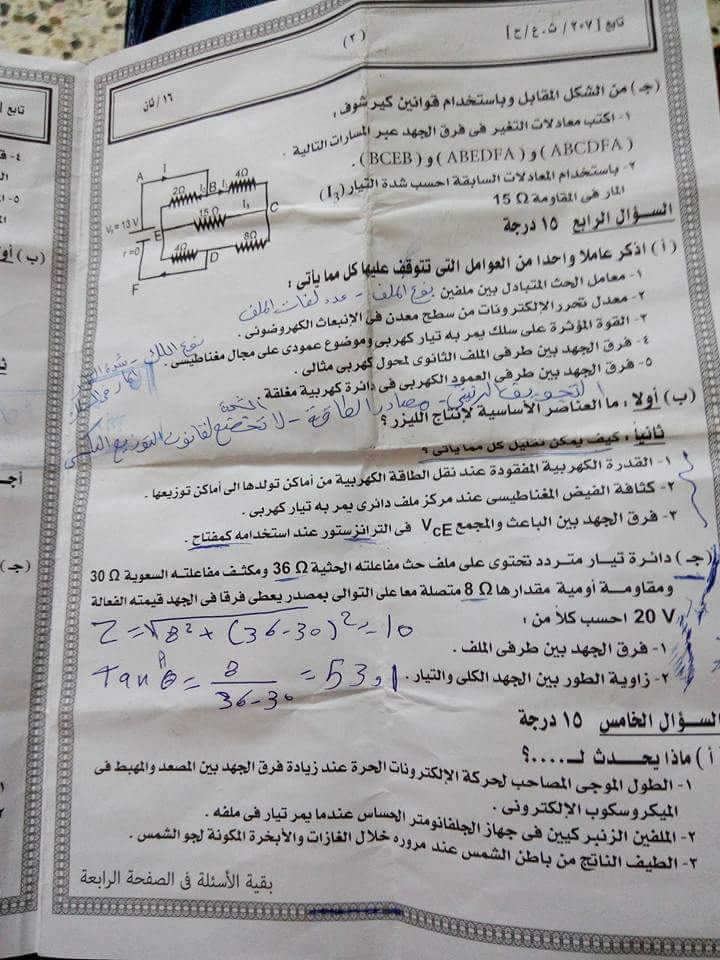 تابع [٢٠٧/ث.ع/ح]
(٣)
١٦/ثان
تابع [
(جـ) من الشكل المقابل وباستخدام قوانين كيرشوف :
١- اكتب معادلات التغير فى فرق الجهد عبر المسارات التالية .
(ABCDFA) و (ABEDFA) و (BCEB) .
٢- باستخدام المعادلات السابقة احسب شدة التيار (I₃)
المار فى المقاومة 15 Ω
A I 2Ω B I₁ 4Ω
15Ω I₃ C
V = 13 V E
r=0 4Ω D 8Ω
F
السؤال الرابع ١٥ درجة
(أ) اذكر عاملا واحدا من العوامل التى تتوقف عليها كل مما يأتى :
١- معامل الحث المتبادل بين ملفين نوع الملف - عدد لفات الملف
٢- معدل تحرر الإلكترونات من سطح معدن فى الإنبعاث الكهروضوئى .
٣- القوة المؤثرة على سلك يمر به تيار كهربى وموضوع عمودى على مجال مغناطيسى .
٤- فرق الجهد بين طرفى الملف الثانوى لمحول كهربى مثالى .
٥- فرق الجهد بين طرفى العمود الكهربى فى دائرة كهربية مغلقة
(ب) أولا : ما العناصر الأساسية لإنتاج الليزر ؟
التجويف الرنينى - مصادر الطاقة - لا تخضع لقانون التربيع العكسى
ثانيا : كيف يمكن تقليل كل مما يأتى ؟
١- القدرة الكهربية المفقودة عند نقل الطاقة الكهربية من أماكن تولدها الى أماكن توزيعها .
٢- كثافة الفيض المغناطيسى عند مركز ملف دائرى يمر به تيار كهربى .
٣- فرق الجهد بين الباعث والمجمع VCE فى الترانزستور عند استخدامه كمفتاح .
(جـ) دائرة تيار متردد تحتوى على ملف حث مفاعلته الحثية 36 Ω ومكثف مفاعلته السعوية 30 Ω
ومقاومة أومية مقدارها 8 Ω متصلة معا على التوالى بمصدر يعطى فرقا فى الجهد قيمته الفعالة
20 V احسب كلاً من :
Z = √8² + (36-30)² = 10
١- فرق الجهد بين طرفى الملف .
٢- زاوية الطور بين الجهد الكلى والتيار .
Tan θ = 8/36-30 = 53,1
السؤال الخامس ١٥ درجة
أ) ماذا يحدث لــ ....؟
١- الطول الموجى المصاحب لحركة الإلكترونات الحرة عند زيادة فرق الجهد بين المصعد والمهبط فى
الميكروسكوب الإلكترونى .
٢- الملفين الزنبركيين فى جهاز الجلفانومتر الحساس عندما يمر تيار فى ملفه .
٣- الطيف الناتج من باطن الشمس عند مروره خلال الغازات والأبخرة المكونة لجو الشمس .
بقية الأسئلة فى الصفحة الرابعة